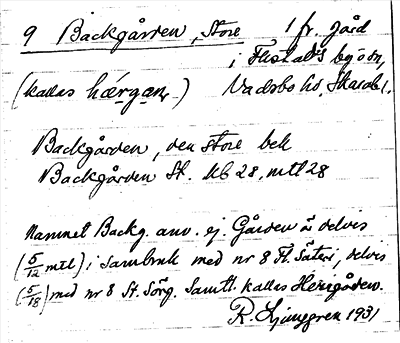 9 Backgården, Store 1 fr. jord
i Flistads by o sn,
(kallas hǽrgan̥) Vadsbo hd, Skarab l.
Backgården, den store bek
Backgården St. Kb 28, mtl 28
Namnet Backg. anv. ej Gården är delvis
(5/12 mtl) i sambruk med nr 8 Fl. Säteri, delvis
(5/18) med nr 8 St. Sörg. Samtl. kallas Herrgården.
R. Ljunggren 1931